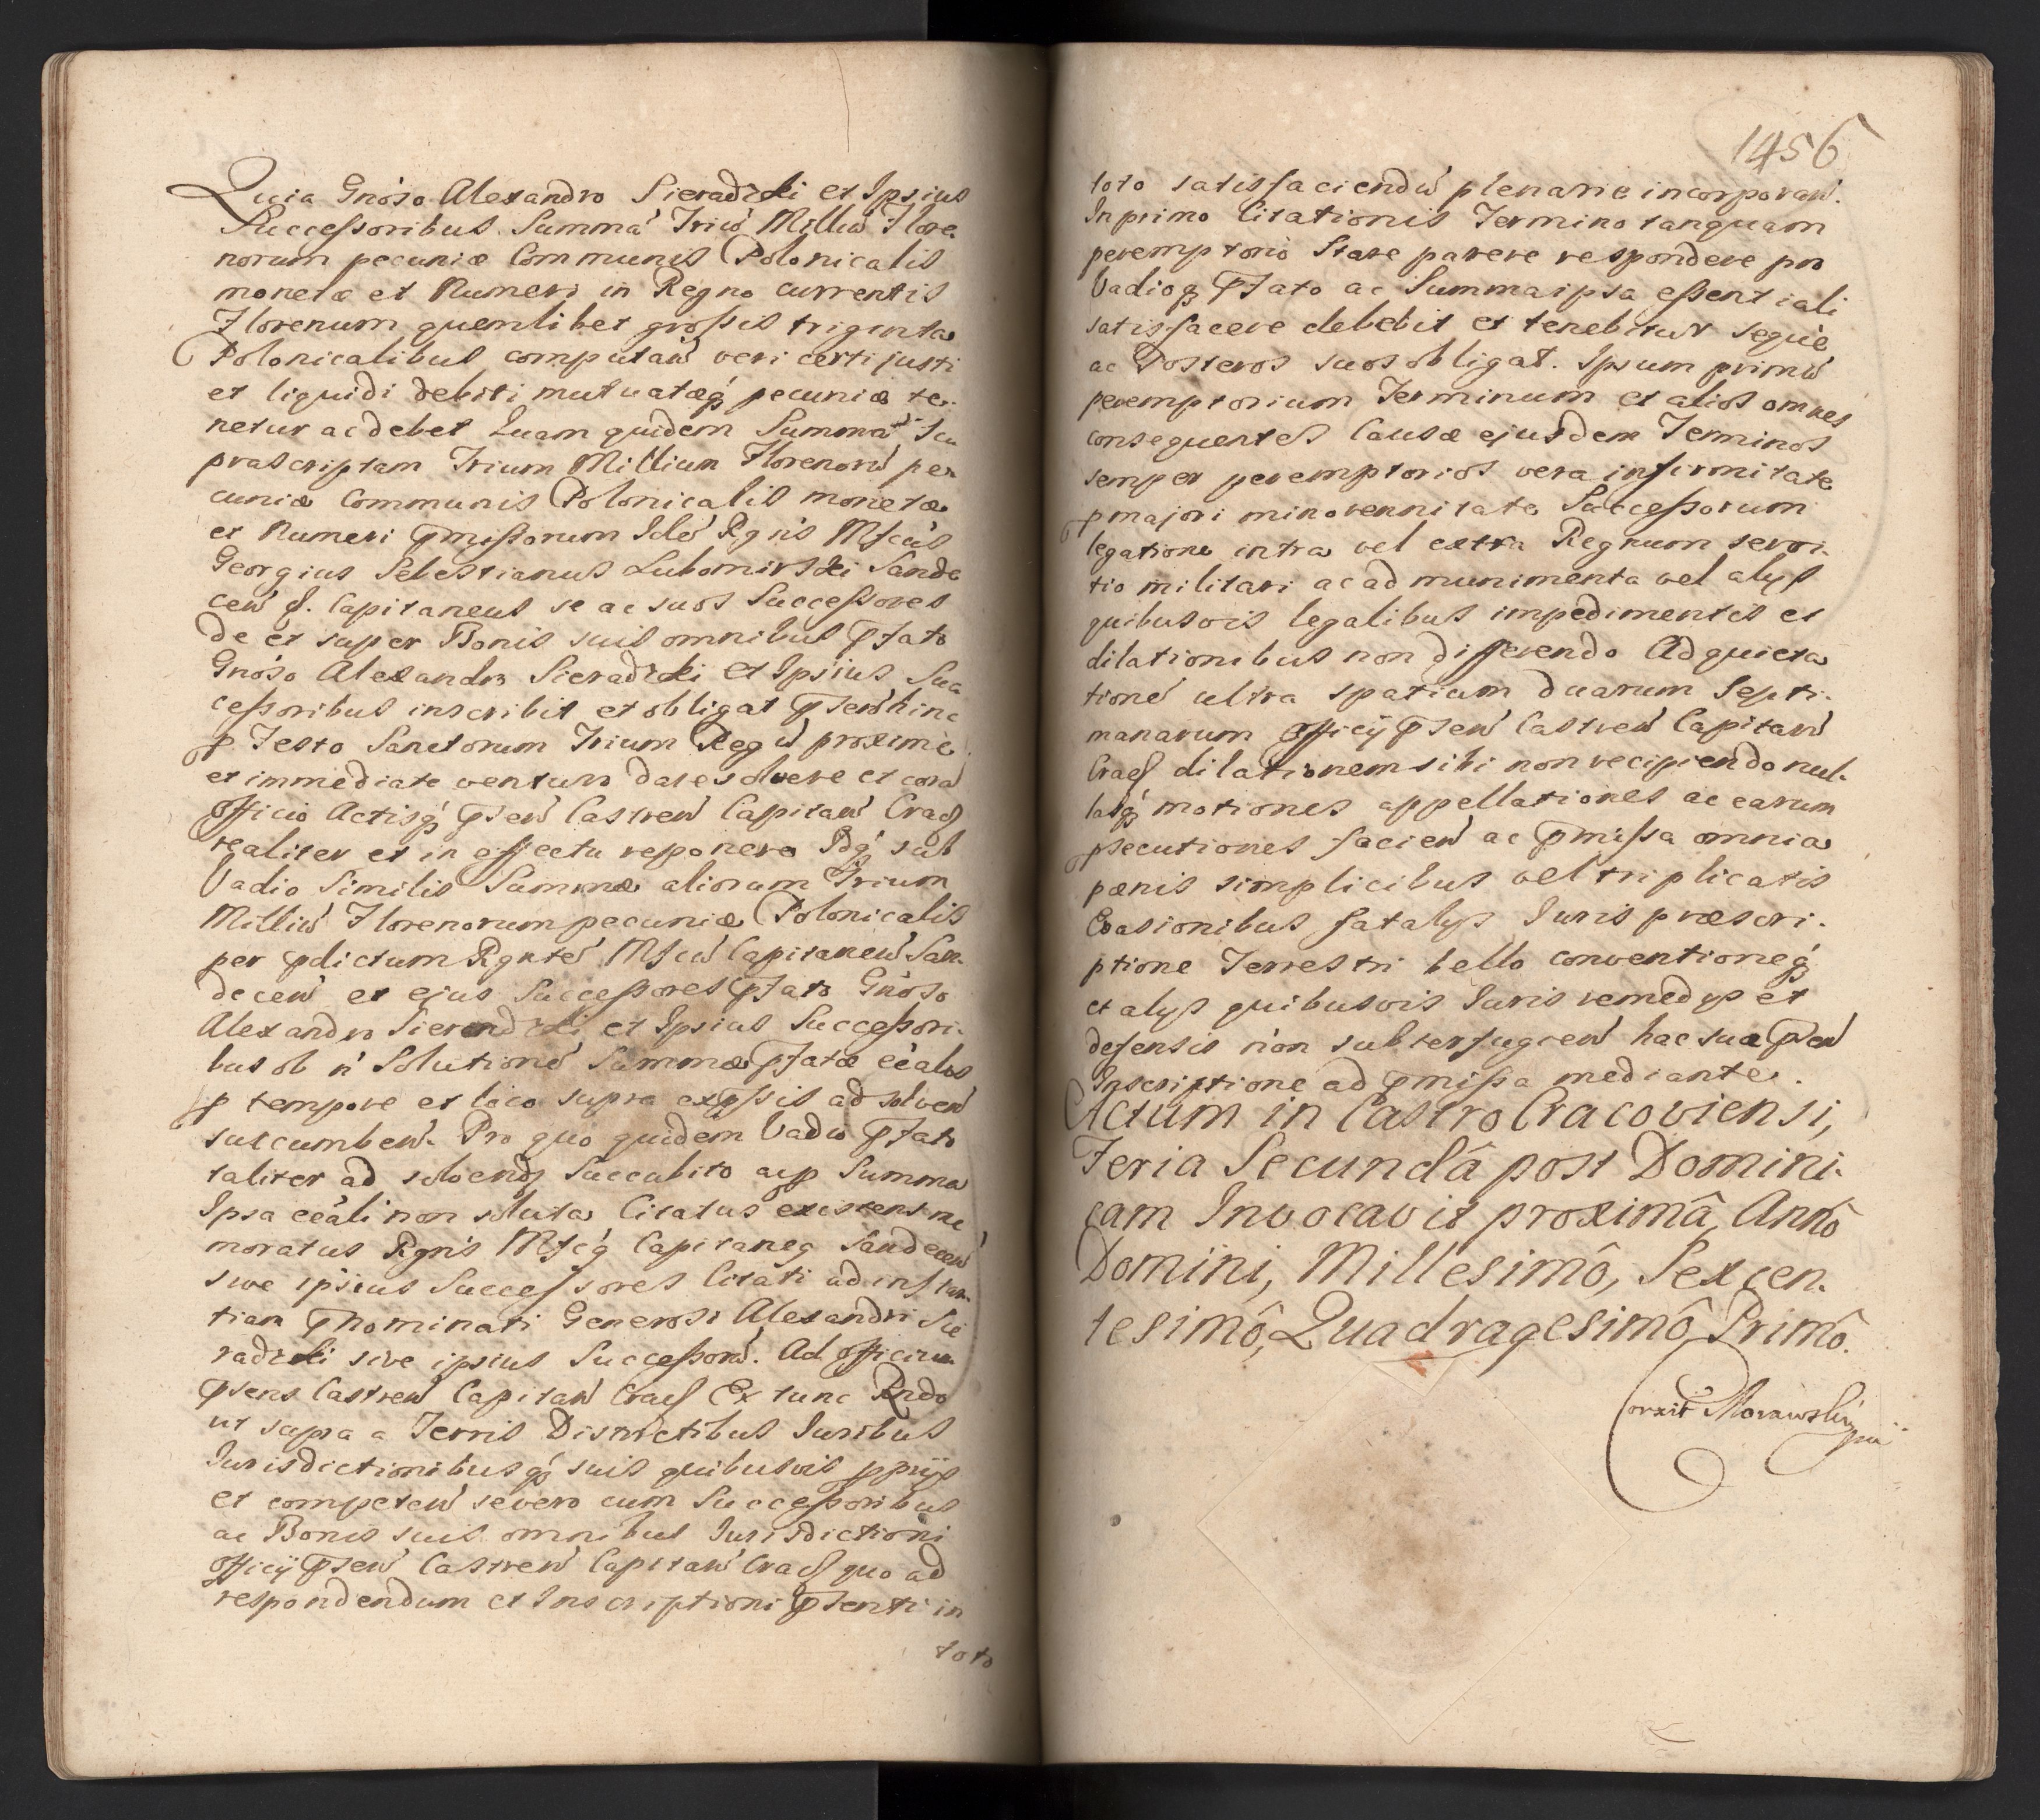 Quia Gnoso Alexandro Sieradzki et Ipsius
Successoribus Summá Triũ Milliũ Flore-
norum pecuniæ Communis Polonicalis
monetæ et Numeri in Regno currentis
Florenum quemlibet grossis triginta
Polonicalibus computań veri certi justi
et liquidi debiti mutuatæq́ pecuniæ te-
netur ac debet Quam quidem Summá
præscriptam Trium Millium Florenorũ pe-
cuniæ Communis Polonicalis monetæ
et Numeri pmissorum Idé Rgńs Mfcus
Georgius Sebestianus Lubomirski Sande
ceń f. Capitaneus se ac suos Successores
de et super Bonis suis omnibus pfato
Gnoso Alexandro Sieradzki et Ipsius Suc
cessoribus inscribit et obligat pteró hinc
p Festo Sanctorum Trium Regũ proxime
et immediate venturo dare solvere et corá
Officio Actisq́ pseń Castreń Capitań Cracf
realiter et in effectu reponere Idq́ sub
Vadio Similis Summæ aliorum Trium
Milliũ Florenorum pecuniæ Polonicalis
per pdictum Rgnté Mfcũ Capitaneũ San-
deceń et ejus Successores pfato Gnoso
Alexandro Sieradzki et Ipsius Successori-
bus ob ń Solutioné Summæ pfatæ eéalis
p tempore et loco supra expssis ad solveń
succumbeń. Pro quo quidem Vadio pfato
taliter ad solvend Succubito acp Summa
Ipsa eéali non soluta Citatus existens me
moratus Rgńs Mfcq́ Capitaneq Sandeceń
sive ipsius Successores Citati ad instan-
tiam pnominati Generosi Alexandri Sie
radzki sive ipsius Successorũ. Ad Officium
psens Castreń Capitań Cracf Ex tunc Rndo
ut supra a Terris Districtibus Iuribus
Iurisdictionibusq́ suis quibusvis pprijs
et competeń se vero cum Successoribus
ac Bonis suis omnibus Iurisdictioni
Officij pseń Castreń Capitań Cracf quo ad
respondendum et Inscriptioni psenti in
toto
1456
toto satisfaciendũ plenarie incorporań.
In primo Citationis Termino tanquam
peremptorio Stare parere respondere pro
Vadioq pfato ac Summa ipsa essentiali
satisfacere debebit et tenebitur seque
ac Posteros suos obligat. Ipsum primũ
peremptorium Terminum et alios omnes
consequentes Causæ ejusdem Terminos
semper peremptorios vera infirmitate
p majori minorennitate Successorum
legatione intra vel extra Regnum servi-
tio militari ac ad munimenta vel alijs
quibusvis legalibus impedimentis et
dilationibus non differendo Ad quieta
tioné ultra spatium duarum Septi-
manarum Officij pseń Castreń Capitań
Cracf dilationem sibi non recipiendo nul-
lasq́ motiones appellationes ac earum
psecutiones facień ac pmissa omnia
pænis simplicibus vel triplicatis
Evasionibus fatalijs Iuris præscri-
ptione Terrestri bello conventioneq́
et alijs quibusvis Iuris remedijs et
defensis non subterfugień hac sua pseń
Inscriptione ad pmissa mediante.
Actum in Castro Cracoviensi,
Feria Secundâ post Domini-
cam Invocavit proximâ, Annô
Domini, Millesimô, Sexcen-
tesimô, Quadragesimô, Primô.
Corxit Morawski